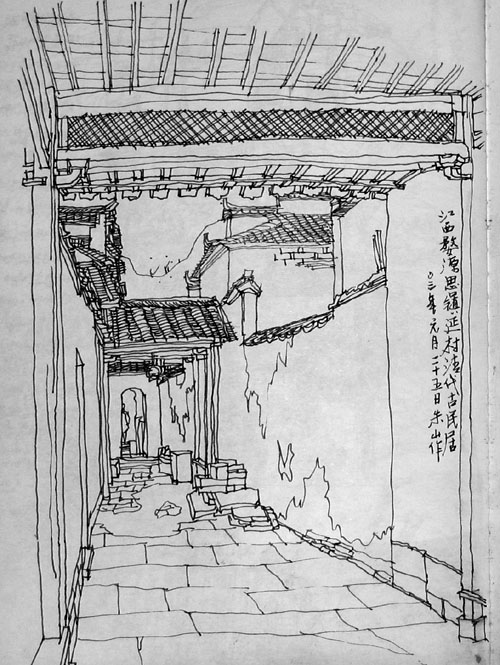 江西婺源思镇延村清代古民居
〇三年元月二十五日朱山作